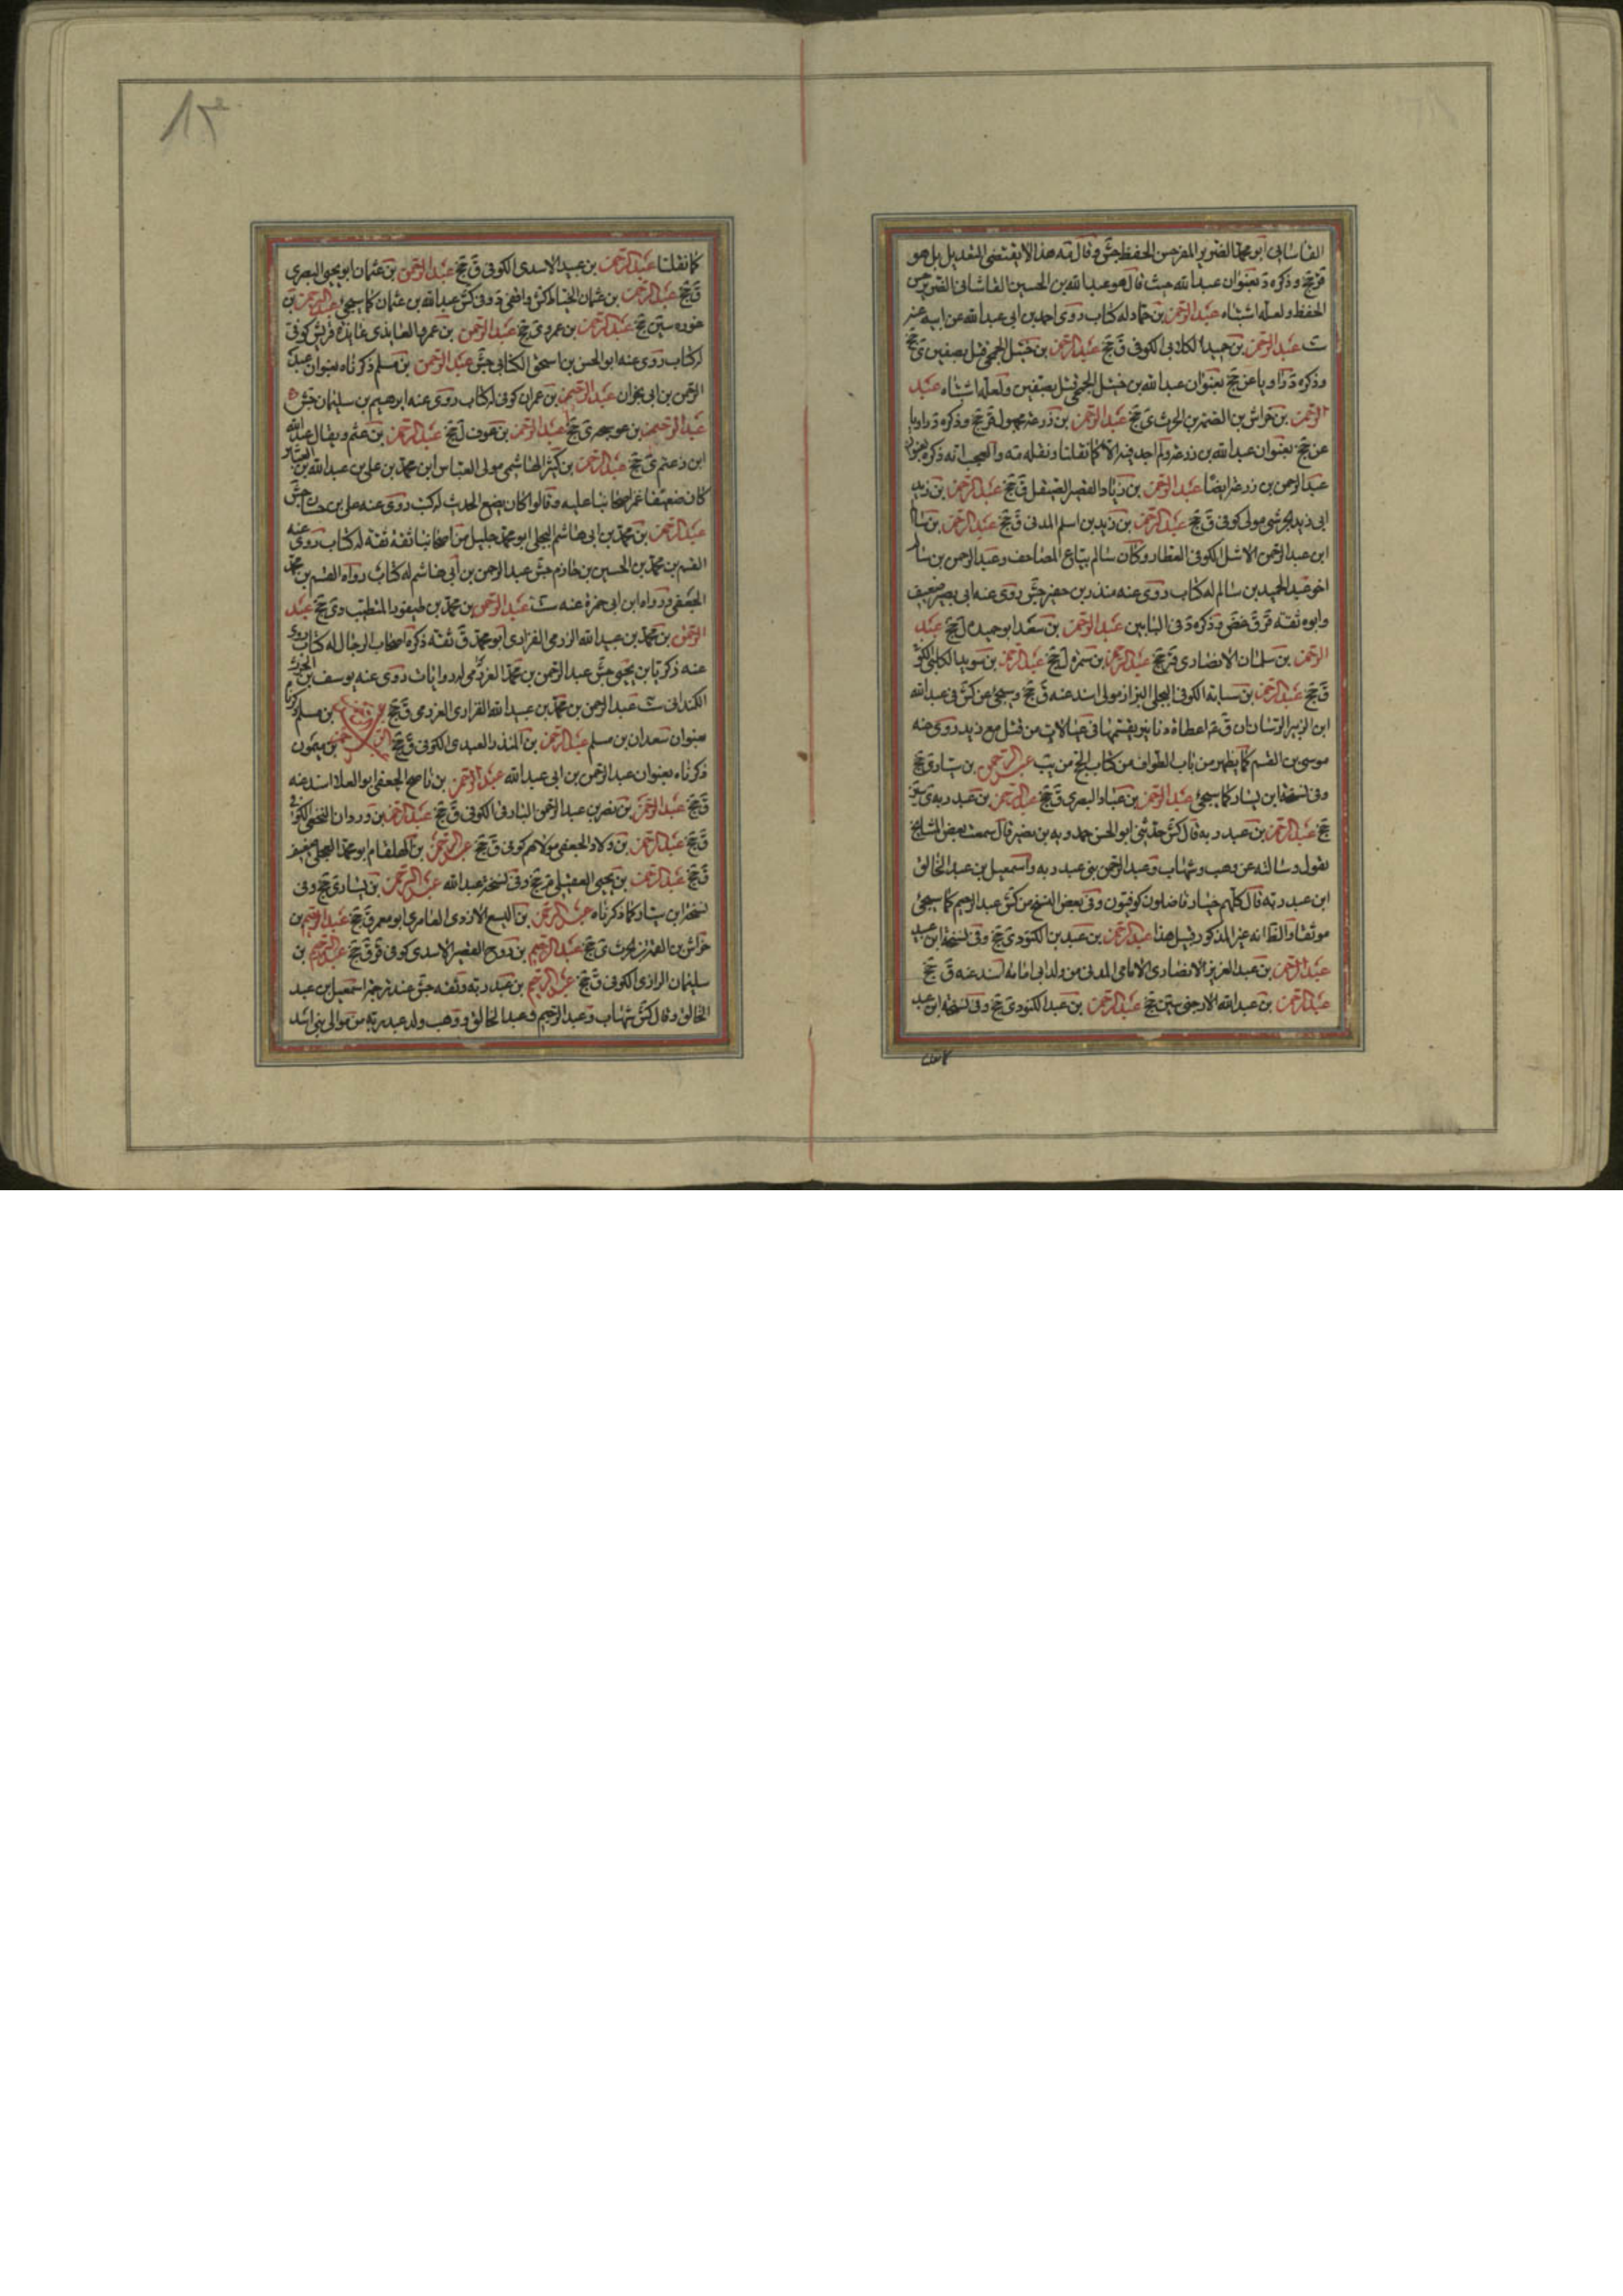 القاسانى ابو محمد الضرير المفسر حسن الحفظ جش وقال مه هذا لا يقتضى التعديل بل هو
وذكره د بعنوان عبدالله حيث قال هو عبدالله بن الحسين القاشانى الضرير حسن
الحفظ ولعله اشتباه عبد الرحمن بن حماد له كتاب روى احمد بن ابى عبدالله عن ابيه عنه
ست عبد الرحمن بن حميد الكلابى الكوفى ق جخ عبد الرحمن بن حنبل الجمحى قتل بصفين ى جخ
وذكره د راويا عن جخ بعنوان عبدالله بن حنبل الجمحى قتل بصفين ولعله اشتباه عبد
الرحمن بن خراش بن الصمة بن الحرث ى جخ عبد الرحمن بن زرعة مجهول قر جخ وذكره د راويا
عن جخ بعنوان عبدالله بن زرعة ولم اجد فيه الا كما نقلنا ونقله مه والعجب انه ذكره بعنوان
عبد الرحمن بن زرعة ايضا عبد الرحمن بن زياد القصير الصيقل ق جخ عبد الرحمن بن زيد
ابى زيد الجرشى مولى كوفى ق جخ عبد الرحمن بن زيد بن اسلم المدنى ق جخ عبد الرحمن بن سالم
ابن عبد الرحمن الاشل الكوفى العطار وكان سالم بياع المصاحف وعبد الرحمن بن سالم
اخو عبد الحميد بن سالم له كتاب روى عنه منذر بن جفير جش روى عنه ابى بصير ضعيف
وابوه ثقة قر ق غض وذكره د فى البابين عبد الرحمن بن سعد ابو حميد ل جخ عبد
الرحمن بن سلمان الانصارى قر جخ عبد الرحمن بن سمرة ل جخ عبد الرحمن بن سويد الكلبى الكوفى
ق جخ عبد الرحمن بن سيابة الكوفى البجلى البزاز مولى اسند عنه ق جخ وسيجئ عن كش فى عبدالله
ابن الزبير الرسان ان ق ع اعطاه دنانير يقسمها فى عيالات من قتل مع زيد روى عنه
موسى بن القسم كما يظهر من باب الطواف من كتاب الحج من يب عبد الرحمن بن سيار ى جخ
وفى نسخة ابن يسار كما سيجئ عبد الرحمن بن عباد البصرى ق جخ عبد الرحمن بن عبد ربه ى سين
جخ عبد الرحمن بن عبد ربه قال كش حدثنى ابو الحسن حمدويه بن نصير قال سمعت بعض المشايخ
يقول وسالته عن وهب وشهاب وعبد الرحمن بنى عبد ربه واسمعيل بن عبد الخالق
ابن عبد ربه قال كلهم خيار فاضلون كوفيون وفى بعض النسخ من كش عبد الرحيم كما سيجئ
موثقا والظ انه غير المذكور قبيل هذا عبد الرحمن بن عبد بن الكنود ى جخ وفى نسخة ابن عبيد
عبد الرحمن بن عبد العزيز الانصارى الامامى المدنى من ولد ابى امامة اسند عنه ق جخ
عبد الرحمن بن عبدالله الارحبى سين جخ عبد الرحمن بن عبد الكنود ى جخ وفى نسخة ابن عبيد
كما نقلنا
كما نقلنا عبد الرحمن بن عبيد الاسدى الكوفى ق جخ عبد الرحمن بن عثمان ابو يحيى البصرى
ق جخ عبد الرحمن بن عثمان الحناط كش واقفى د وفى كش عبدالله بن عثمان كما سيجئ عبد الرحمن بن
سين جخ عبد الرحمن بن عمرو ى جخ عبد الرحمن بن عمرو العايذى عايذة قريش كوفى
له كتاب روى عنه ابو الحسن بن اسحق الكتانى جش عبد الرحمن بن مسلم ذكرناه بعنوان عبد
الرحمن بن ابى نجران عبد الرحمن بن عمران كوفى له كتاب روى عنه ابرهيم بن سليمان جش
عبد الرحمن بن عوسجة ى جخ عبد الرحمن بن عوف ل جخ عبد الرحمن بن غنم ويقال عبدالله
ابن غنم ى جخ عبد الرحمن بن كثير الهاشمى مولى العباس ابن محمد بن على بن عبدالله بن العباس
كان ضعيفا غمز اصحابنا عليه وقالوا كان يضع الحديث له كتب روى عنه على بن حسان جش
عبد الرحمن بن محمد بن ابى هاشم البجلى ابو محمد جليل من اصحابنا ثقة ثقة له كتاب روى عنه
القسم بن محمد بن الحسين بن خازم جش عبد الرحمن بن ابى هاشم له كتاب رواه القسم بن محمد
الجعفى ورواه ابن ابى حمزة عنه ست عبد الرحمن بن محمد بن طيفور المتطبب دى جخ عبد
الرحمن بن محمد بن عبيد الله الرزمى الفزارى ابو محمد ق ثقة ذكره اصحاب الرجال له كتاب روى
عنه زكريا بن يحيى جش عبد الرحمن بن محمد العرزمى له روايات روى عنه يوسف بن الحرث
الكندانى ست عبد الرحمن بن محمد بن عبيد الله الفزارى العرزمى ق جخ بن مسلم ذكرناه
بعنوان سعدان بن مسلم عبد الرحمن بن المنذر العبدى الكوفى ق جخ بن ميمون
ذكرناه بعنوان عبد الرحمن بن ابى عبد الله عبد الرحمن بن ناصح الجعفى ابو العلا اسند عنه
ق جخ عبد الرحمن بن نصر بن عبد الرحمن البارقى الكوفى ق جخ عبد الرحمن بن وردان النخعى الكوفى
ق جخ عبد الرحمن بن ولاد الجعفى مولاهم كوفى ق جخ عبد الرحمن بن الهلقام ابو محمد العجلى ضعيف
ق جخ عبد الرحمن بن يحيى العقيلى قر جخ وفى نسخة عبد الله عبد الرحمن بن يسار ى جخ وفى
نسخة ابن سيار كما ذكرناه عبد الرحمن بن اليسع الازدى الغامرى ابو معمر ق جخ عبد الرحيم بن
خراش بن الصمة بن الحرث ى جخ عبد الرحيم بن روح القصير الاسدى كوفى قر ق جخ عبد الرحيم بن
سليمان الرازى الكوفى ق جخ عبد الرحيم بن عبد ربه وثقه جش عند ترجمة اسمعيل بن عبد
الخالق وقال كش شهاب وعبد الرحيم وعبد الخالق ووهب ولد عبد ربه من موالى بنى اسد